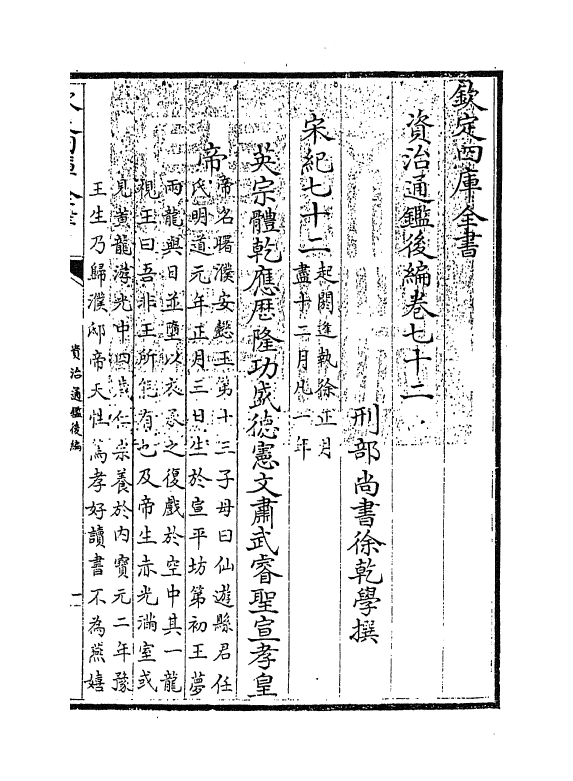 欽定四庫全書
資治通鑑後編卷七十二
刑部尚書徐乾學撰
宋紀七十二起閼逢執徐正月盡十二月凡一年
英宗體乾應歷隆功盛德憲文肅武睿聖宣孝皇
帝帝名曙濮安懿王第十三子母曰仙遊縣君任
氏明道元年正月三日生於宣平坊第初王夢
兩龍與日並墮以衣承之復戲於空中其一龍
視王曰吾非王所能有也及帝生赤光滿室或
見黃龍游光中四歲仁宗養於内寶元二年豫
王生乃歸濮邸帝天性篤孝好讀書不為燕嬉
欽定四庫全書
資治通鑑後編
一